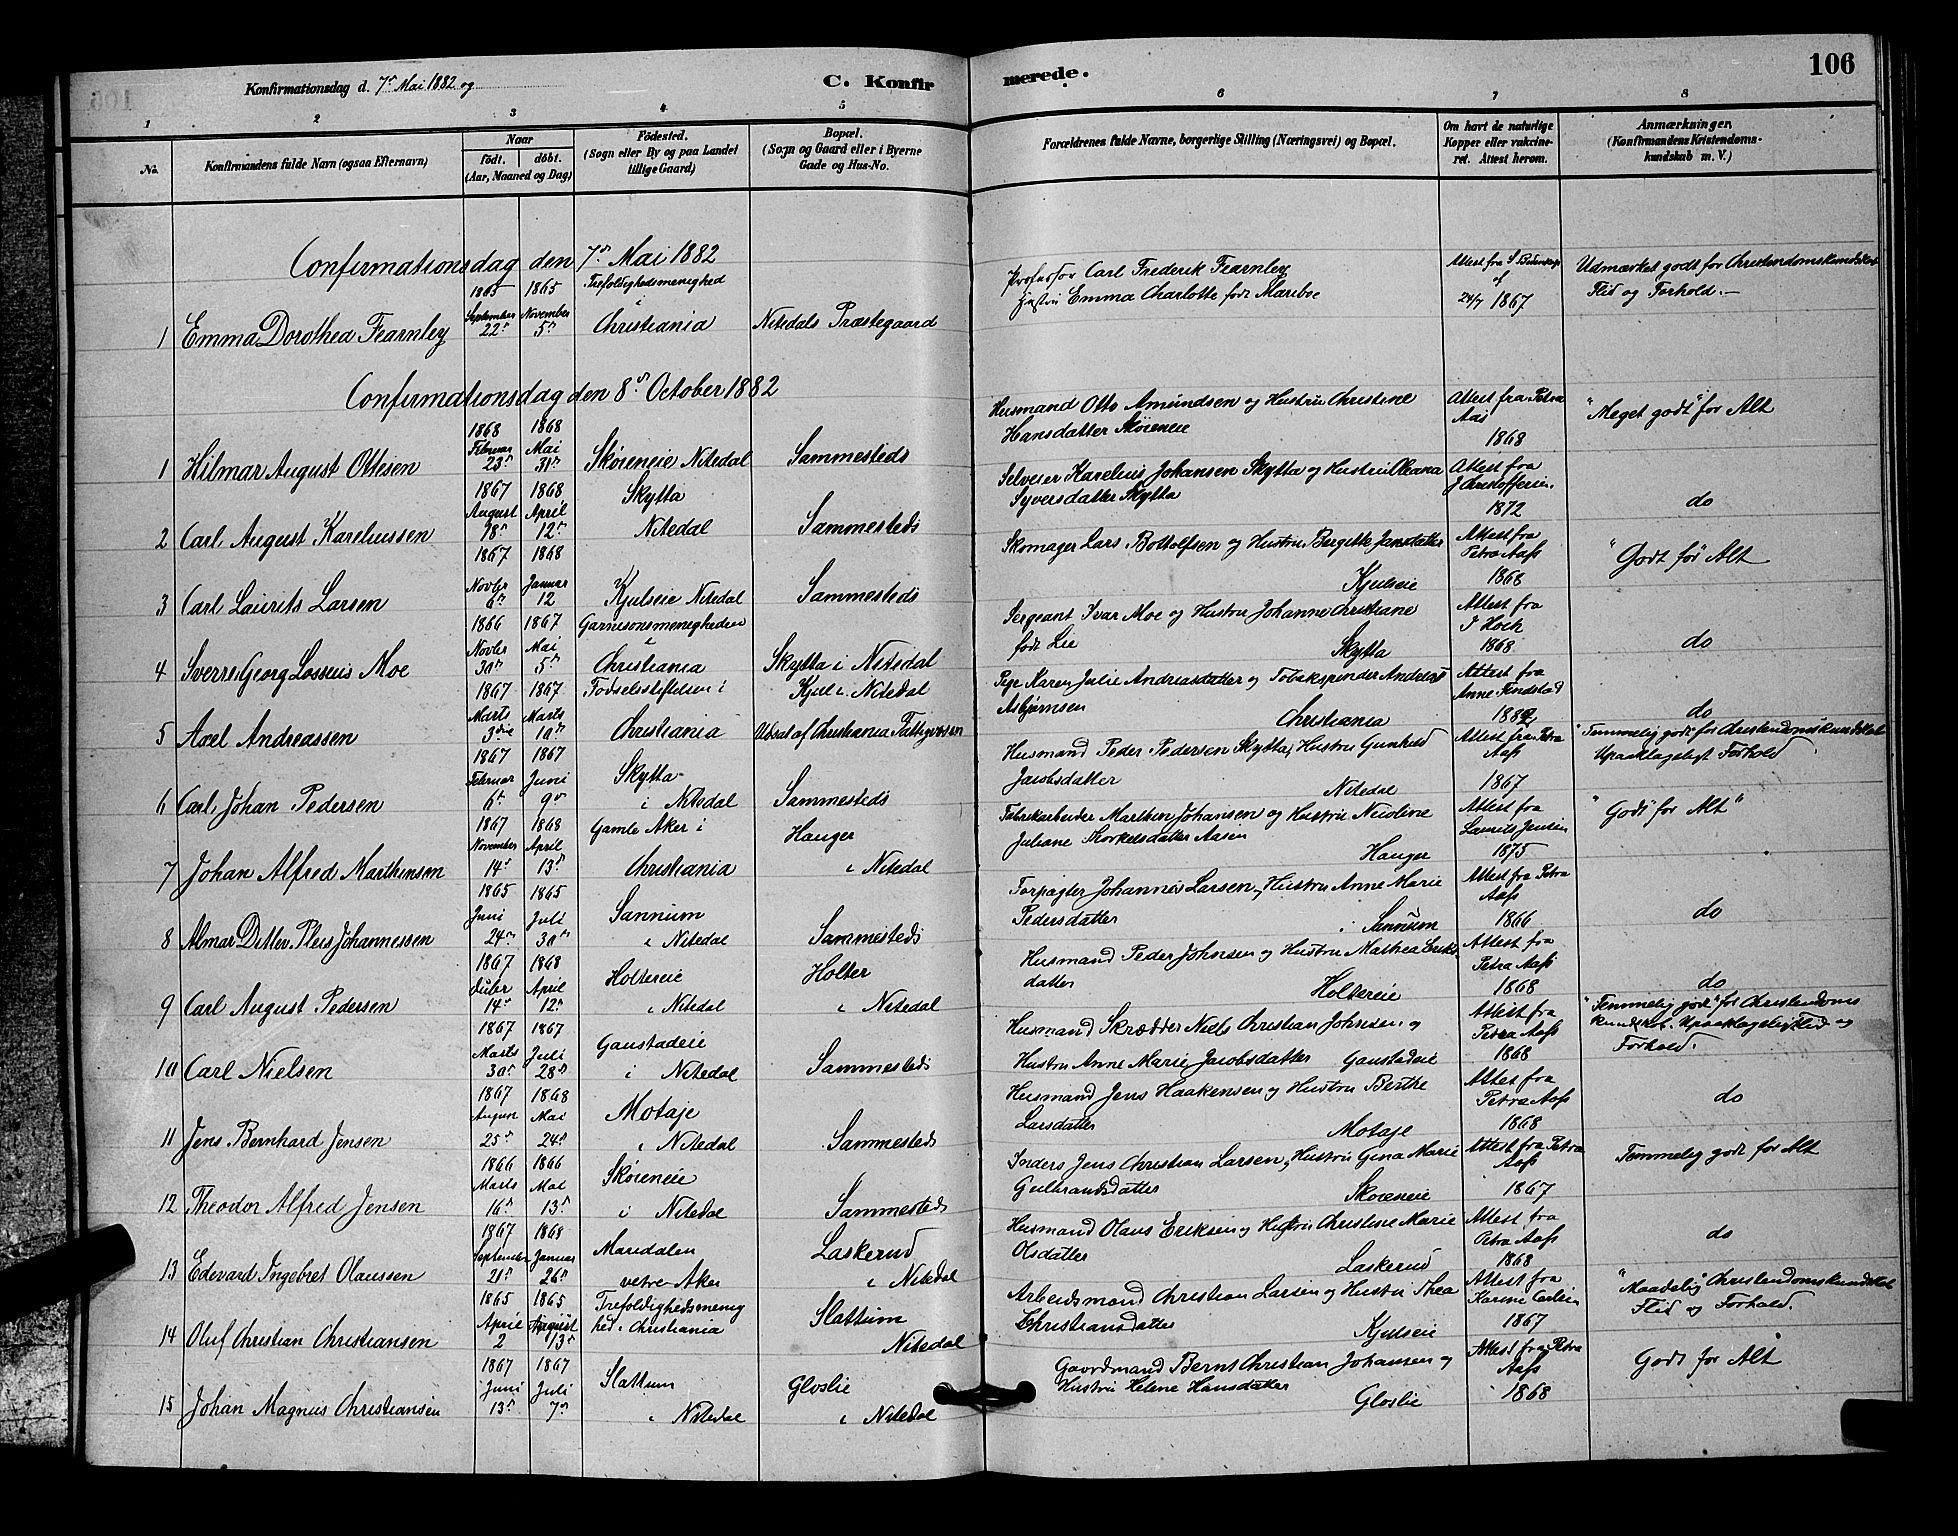 Konfirmationsdag d. 7de Mai 1882 og
C. Konfirmerede.
106
1 2 3 4 5 6 7 8
No.
Konfirmandens fulde Navn (ogsaa Efternavn)
Naar
födt. döbt.
(Aar, Maaned og Dag)
Födested.
(Sogn eller By og paa Landet
tillige Gaard)
Bopæl.
(Sogn og Gaard eller i Byerne
Gade og Hus-No.
Forældrenes fulde Navne, borgerlige Stilling (Næringsvei) og Bopæl.
Om havt de naturlige
Kopper eller vakcine-
ret. Attest herom.
Anmærkninger.
(Konfirmandens Kristendoms-
kundskab m. V.)
Confirmationsdag den 7de Mai 1882
1 Emma Dorothea Fearnley
1865 September 22de
1865 November 5te
Trefoldighedsmenighed
i
Christiania
Nitedals Præstegaard
Professor Carl Frederik Fearnley
Hustru Emma Charlotte født Mariboe
Attest fra
af
24/7 1867
Udmærket godt for Christendomskundskab
Flid og Forhold.—
Confirmationsdag den 8de October 1882
1 Hilmar August Ottesen
1868 Februar 23de
1868 Mai 31te
Skøreneie Nitedal
Sammesteds
Husmand Otto Amundsen og Hustru Christine
Hansdatter Skøreneie
Attest fra Petra
Aas
1868
"Meget godt" for Alt
2 Carl August Kareliussen
1867 August 18de
1868 April 12te
Skytta
Nitedal
Sammesteds
Selveier Karelius Johansen Skytta og Hustru Oleana
Syversdatter Skytta
Attest fra
J Christoffersen
1872
do
3 Carl Laurits Larsen
1867 Novbr 6te
1868 Januar 12
Kjulseie Nitedal
Sammesteds
Skomager Lars Bottolfsen og Hustru Bergitte Jansdatter
Kjulseie
Attest fra
Petra Aass
1868
"Godt for Alt
4 Sverre Georg Lossius Moe
1866 Novbr 30te
1867 Mai 5te
Garnisonsmenigheden
i
Christiania
Skytta i Nitedal
Sergeant Ivar Moe og Hustru Johanne Christiane
født Lie
Skytta
Attest fra
J Hoch
1868
do
5 Axel Andreassen
1867 Marts 3die
1867 Marts 10de
Fødselsstiftelsen i
Christiania
Kjul i Nitedal
Udsat af Christiania Fattigvæsen
Pige Karen Julie Andreasdatter og Tobakspinder Andreas
Asbjørnsen
Christiania
Attest fra
Anne Tindstad
1882
do
6 Carl Johan Pedersen
1867 Februar 6te
1867 Juni 9de
Skytta
i Nitedal
Sammesteds
Husmand Peder Pedersen Skytta, Hustru Gunhild
Jacobsdatter
Nitedal
Attest fra Petra
Aass
1867
"Temmelig godt" for Christendomskundskab
Upaaklageligt Forhold
7 Johan Alfred Marthinsen
1867 November 14de
1868 April 13de
Gamle Aker i
Christiania
Hauger
i Nitedal
Fabrikarbeider Marthin Johansen og Hustru Nicoline
Juliane Thorkelsdatter Aasen
Hauger
Attest fra
Laurits Jensen
1875
"Godt for Alt"
8 Almar Detlev Pleis Johannessen
1865 Juni 24de
1865 Juli 30te
Sannum
i Nitedal
Sammesteds
Forpagter Johannes Larsen, Hustru Anne Marie
Pedersdatter
i Sannum
Attest fra Petra
Aass
1866
do
9 Carl August Pedersen
1867 14de
1868 April 12te
Holtereie
i Nitedal
Holter
i Nitedal
Husmand Peder Johnsen og Hustru Mathea Eriks
datter
Holtereie
Attest fra
Petra Aass
1868
do
10 Carl Nielsen
1867 Marts 30te
1867 Juli 28de
Gaustadeie
i Nitedal
Sammesteds
Husmand Skrædder Niels Christian Johnsen og
Hustru Anne Marie Jacobsdatter Gaustadeie
Attest fra
Petra Aass
1868
"Temmelig godt" for Christendoms
kundskab. Upaaklagelig Flid og
Forhold.
11 Jens Bernhard Jensen
1867 August 25de
1868 Mai 24de
Motaje
i Nitedal
Sammesteds
Husmand Jens Haakensen og Hustru Berthe
Larsdatter
Motaje
Attest fra
Petra Aass
1868
do
12 Theodor Alfred Jensen
1866 Marts 16de
1866 Mai 13de
Skøreneie
i Nitedal
Sammesteds
Inders Jens Christian Larsen, Hustru Gina Marie
Gulbrandsdatter
Skøreneie
Attest fra Petra
Aass
1867
Temmelig godt for Alt
13 Edevard Ingebret Olaussen
1867 September 21de
1868 Januar 26de
Maridalen
vestre Aker
Laskerud
i Nitedal
Husmand Olaus Eriksen og Hustru Christine Marie
Olsdatter
Laskerud
Attest fra
Petra Aass
1868
do
14 Oluf Christian Christiansen
1865 April 2
1865 August 13de
Trefoldighedsmenig
hed i Christiania
Slattum
Nitedal
Arbeidsmand Christian Larsen og Hustru Thea
Christiansdatter
Kjulseie
Attest fra
Karine Carlsen
1867
"Maadelig" Christendomskundskab
Flid og Forhold.
15 Johan Magnus Christiansen
1867 Juni 13de
1867 Juli 7de
Slattum
i Nitedal
Gloslie
i Nitedal
Gaardmand Bernt Christian Johansen og
Hustru Helene Hansdatter
Gloslie
Attest fra Petra
Aass
1868
Godt for Alt